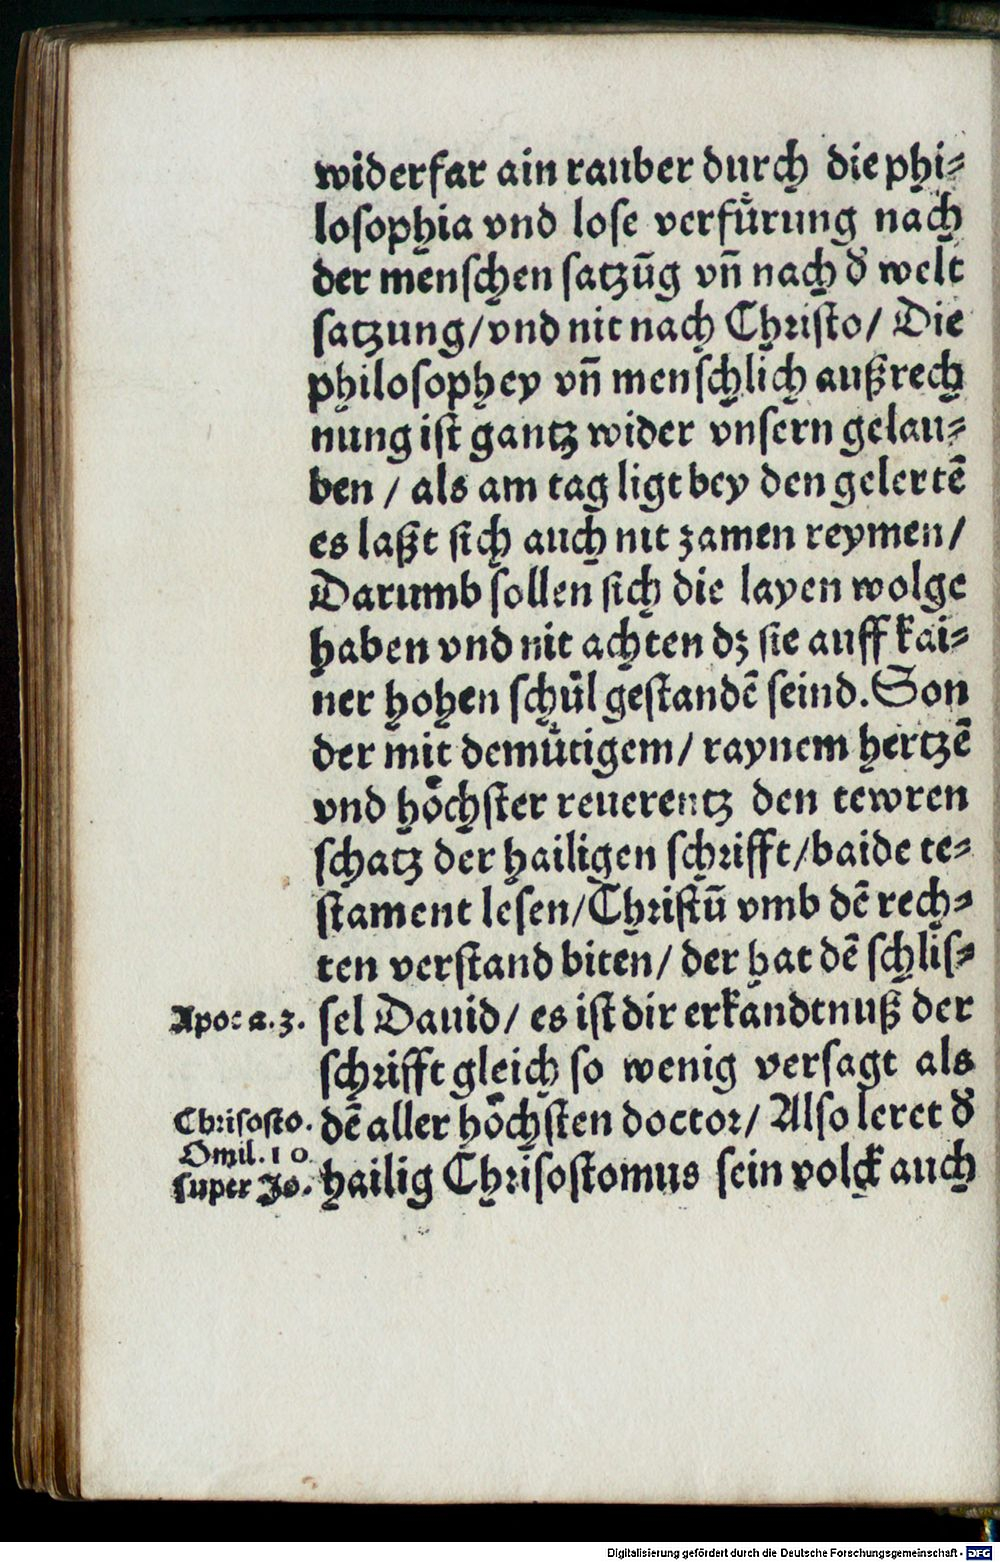 widerfar ain rauber durch die phi⸗
losophia vnd lose verfuͤrung nach
der menschen satzūg vn̄ nach đ welt
satzung/vnd nit nach Christo/ Die
philosophey vn̄ menschlich außrech
nung ist gantz wider vnsern gelau⸗
ben / als am tag ligt bey den gelertē
es laßt sich auch nit zamen reymen/
Darumb sollen sich die layen wolge
haben vnd nit achten dz sie auff kai⸗
ner hohen schůl gestandē seind. Son
der mit demuͤtigem/ raynem hertzē
vnd hoͤchster reuerentz den tewren
schatz der hailigen schrifft/baide te⸗
stament lesen/Christū vmb dē rech⸗
ten verstand biten/ der hat dē schlis⸗
Apoca.3. sel Dauid/ es ist dir erkandtnuß der
schrifft gleich so wenig versagt als
Chrisosto. dē aller hoͤchsten doctor/ Also leret đ
Omil.10
super Jo. hailig Chrisostomus sein volck auch
Digitalisierung gefördert durch die Deutsche Forschungsgemeinschaft - DFG